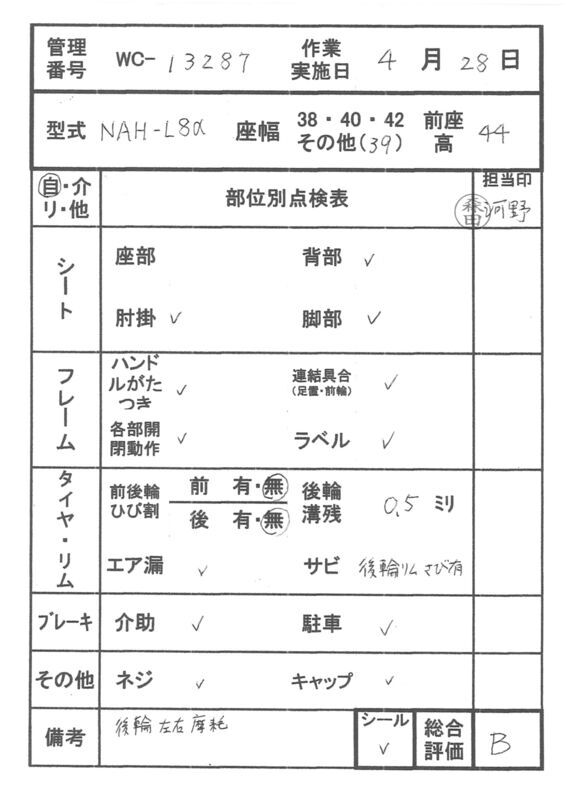 管理番号 WC- 13287 作業実施日 4 月 28 日
型式 NAH-L8α 座幅 38・40・42 その他(39) 前座高 44
自・介
リ・他
部位別点検表
担当印
森田 河野
シート
座部 背部 ✓
肘掛 ✓ 脚部 ✓
フレーム
ハンドルがたつき ✓ 連結具合(足置・前輪) ✓
各部開閉動作 ✓ ラベル ✓
タイヤ・リム
前後輪ひび割 前 有・無
後 有・無
後輪溝残 0.5 ミリ
エア漏 ✓ サビ 後輪リム さび有
ブレーキ 介助 ✓ 駐車 ✓
その他 ネジ ✓ キャップ ✓
備考 後輪左右摩耗 シール ✓ 総合評価 B